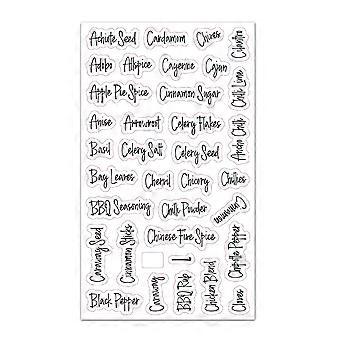 Achiote Seed Cardamom Chives Cilantro
Adobo Allspice Cayenne Cajun
Apple Pie Spice Cinnamon Sugar Chili Lime
Anise Arrowroot Celery Flakes Ancho Chili
Basil Celery Salt Celery Seed
Bay Leaves Chervil Chicory Chillies
BBQ Seasoning Chili Powder Cinnamon
Caraway Seed Cinnamon Sticks Chinese Five Spice Chipotle Pepper
Black Pepper Caraway BBQ Rub Chicken Blend Cloves